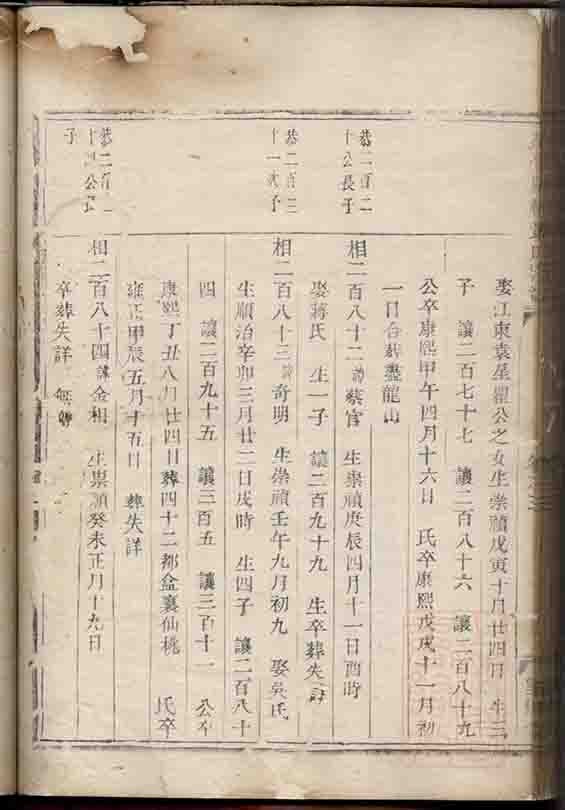 娶江東袁星耀公之女生崇禎戊寅十月廿四日 生三
子 讓二百七十七 讓二百八十六 讓二百八十九
公卒康熙甲午四月十六日 氏卒康熙戊戌十一月初
一日合葬盤龍山
恭二百二
十公長子
相二百八十二諱蔡官 生崇禎庚辰四月十一日酉時
娶蔣氏 生一子 讓二百九十九 生卒葬失詳
恭二百二
十一公子
相二百八十三諱奇明 生崇禎壬午九月初九 娶吳氏
生順治辛卯三月廿二日戌時 生四子 讓二百八十
四 讓二百九十五 讓三百五 讓三百十一 公卒
康熙丁丑八月廿四日葬四十二都金襄仙桃 氏卒
雍正甲辰五月十五日 葬失詳
恭二百二
十 公
子
相二百八十四諱金相 生崇禎癸未正月十九日
卒葬失詳 無